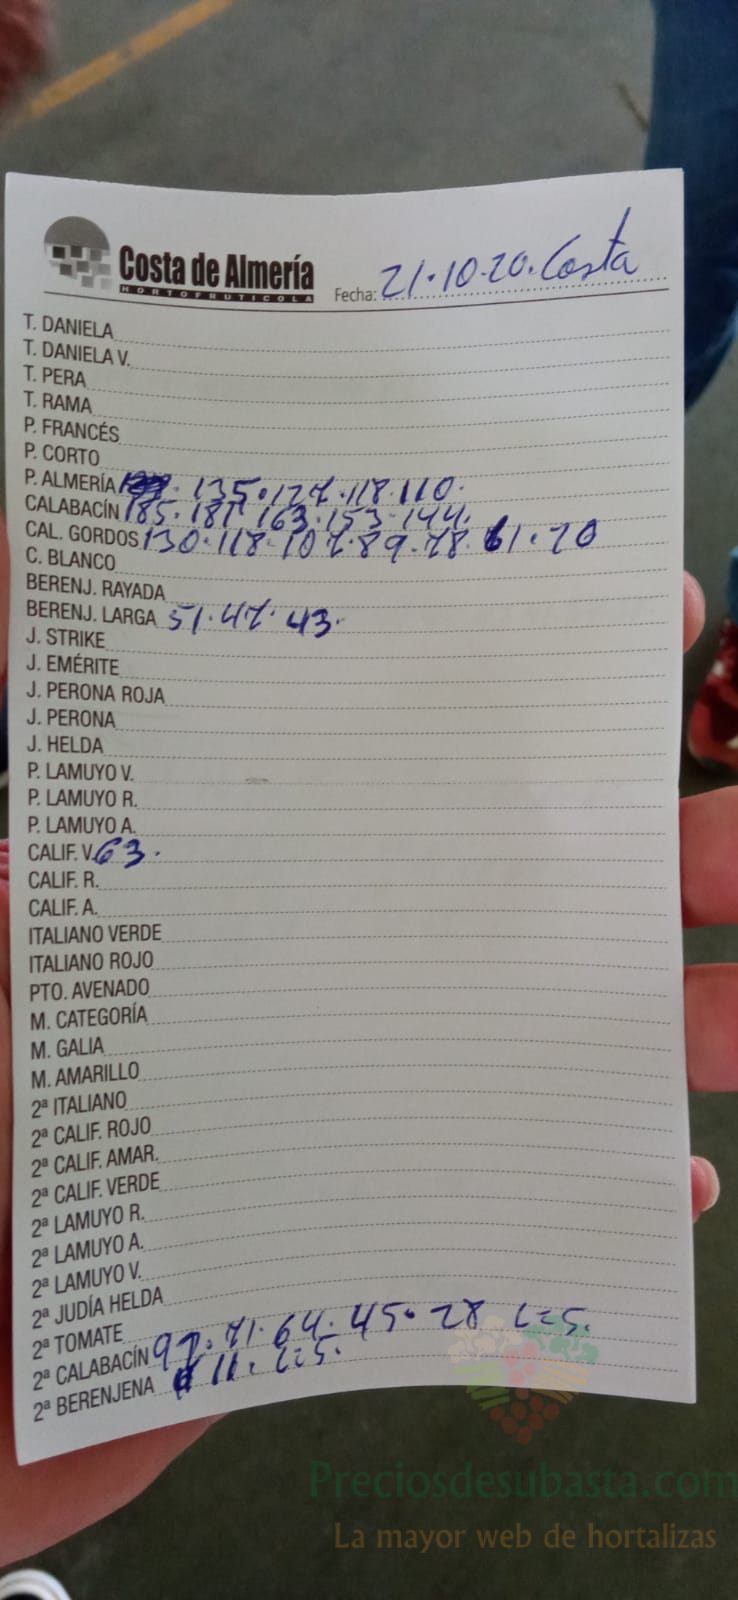 Costa de Almería
HORTOFRUTICOLA
Fecha: 21.10.20. Costa
T. DANIELA
T. DANIELA V.
T. PERA
T. RAMA
P. FRANCÉS
P. CORTO
P. ALMERÍA 135.127.118.110.
CALABACÍN 185.181.163.153.144.
CAL. GORDOS 130.118.107.89.78.61.20
C. BLANCO
BERENJ. RAYADA
BERENJ. LARGA 51.47.43.
J. STRIKE
J. EMÉRITE
J. PERONA ROJA
J. PERONA
J. HELDA
P. LAMUYO V.
P. LAMUYO R.
P. LAMUYO A.
CALIF. V. 63.
CALIF. R.
CALIF. A.
ITALIANO VERDE
ITALIANO ROJO
PTO. AVENADO
M. CATEGORÍA
M. GALIA
M. AMARILLO
2ª ITALIANO
2ª CALIF. ROJO
2ª CALIF. AMAR.
2ª CALIF. VERDE
2ª LAMUYO R.
2ª LAMUYO A.
2ª LAMUYO V.
2ª JUDÍA HELDA
2ª TOMATE
2ª CALABACÍN 97.71.64.45.28 L=5.
2ª BERENJENA 11. L=5.
Preciosdesubasta.com
La mayor web de hortalizas